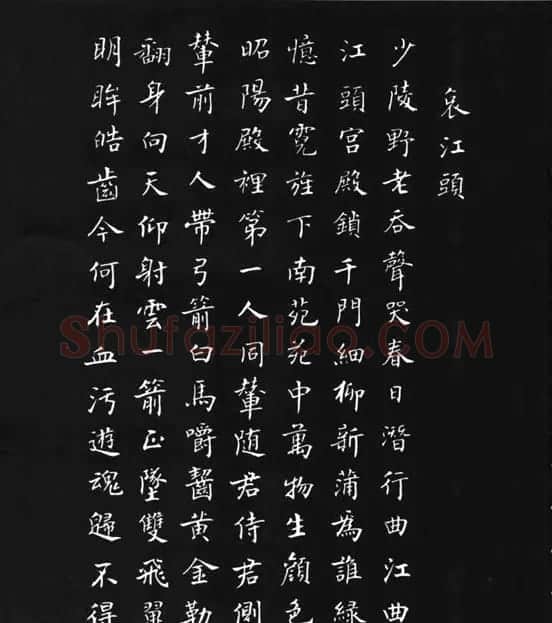 哀江頭
少陵野老吞聲哭春日潛行曲江曲
江頭宮殿鎖千門細柳新蒲為誰緑
憶昔霓旌下南苑苑中萬物生顔色
昭陽殿裡第一人同輦随君侍君側
輦前才人帶弓箭白馬嚼齧黄金勒
翻身向天仰射雲一箭正墜雙飛翼
明眸皓齒今何在血污遊魂歸不得
Shufaziliao.COM